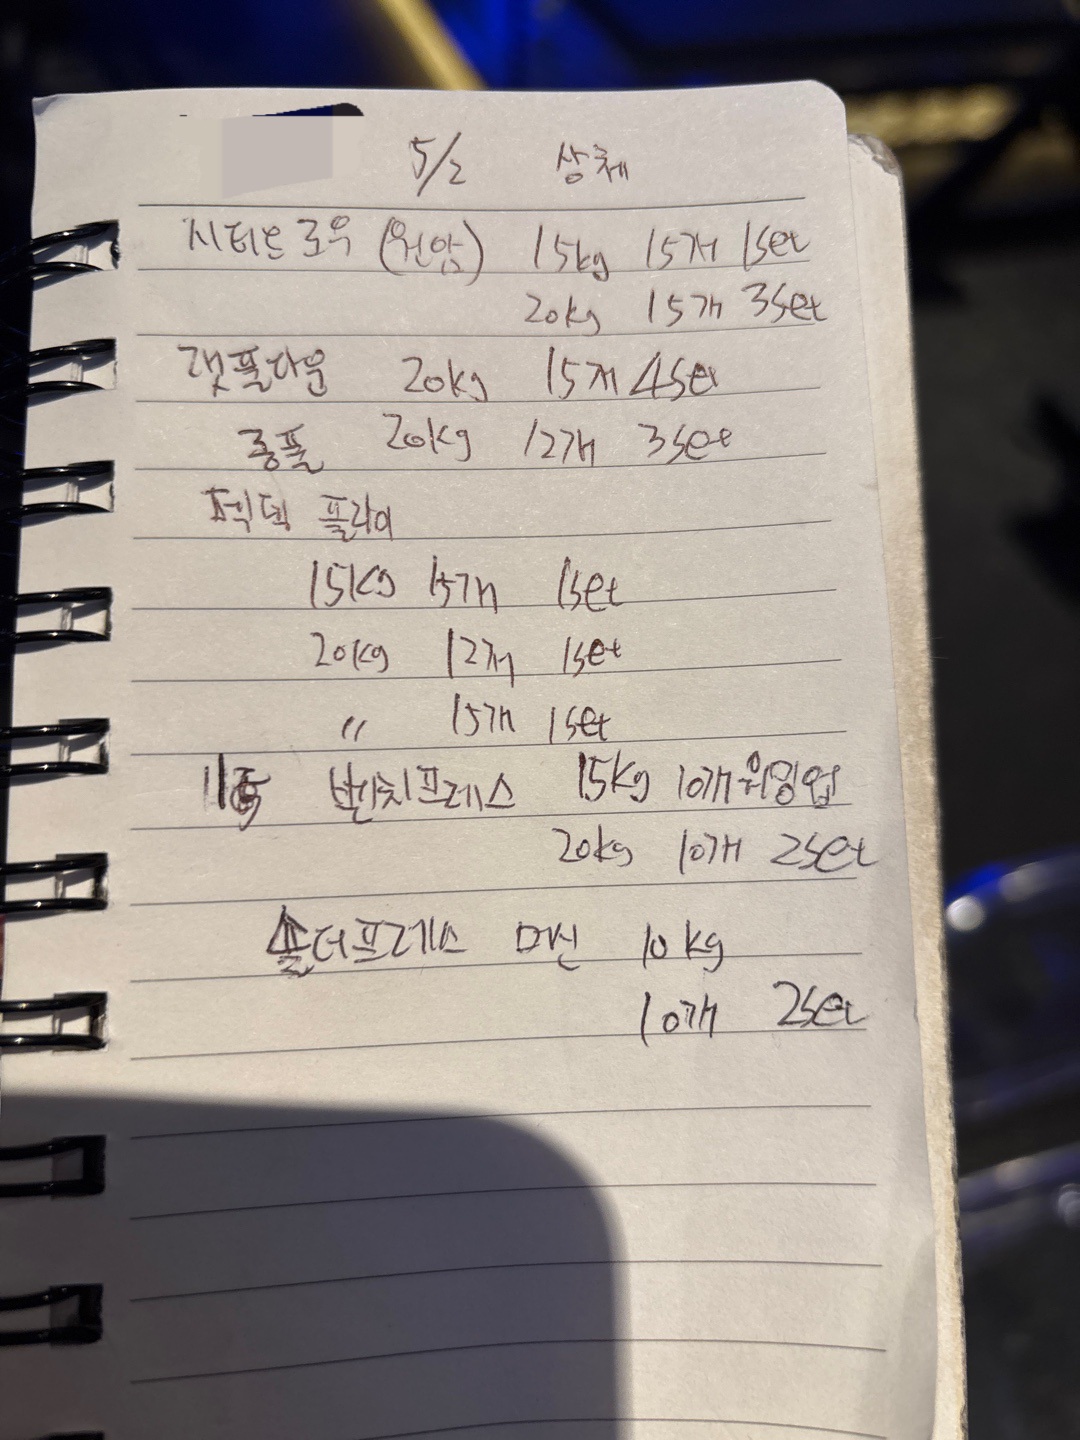 5/2 상체
시티드 로우 (원암) 15kg 15개 1set
20kg 15개 3set
랫풀다운 20kg 15개 4set
롱풀 20kg 12개 3set
펙덱 플라이
15kg 15개 1set
20kg 12개 1set
〃 15개 1set
벤치프레스 15kg 10개 워밍업
20kg 10개 2set
숄더프레스 머신 10kg
10개 2set